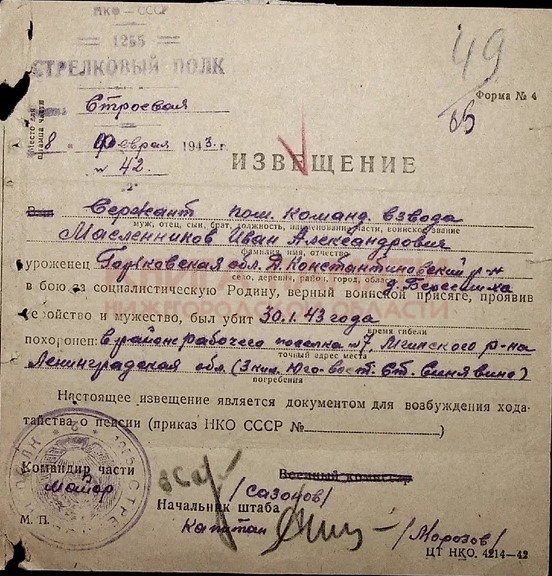 НКО – СССР
1255
СТРЕЛКОВЫЙ ПОЛК
49
Форма № 4
Строевая
8 Февраля 1943 г.
№ 42
ИЗВЕЩЕНИЕ
Сержант пом. команд. взвода
муж, отец, сын, брат, должность, наименование части, воинское звание
Масленников Иван Александрович
фамилия, имя, отчество
уроженец Горьковская обл. Д. Константиновский р-н
село, деревня, район, город, область
д. Березниха
в бою за социалистическую Родину, верный воинской присяге, проявив
геройство и мужество, был убит 30.1.43 года
время гибели
похоронен: в районе рабочего поселка №7, Мгинского р-на
точный адрес места
Ленинградская обл. (3 км. Юго-вост. Ст. Синявино)
погребения
Настоящее извещение является документом для возбуждения хода-
тайства о пенсии (приказ НКО СССР № )
Командир части
майор
Военный комиссар
/Сазонов/
Начальник штаба
Капитан
/Морозов/
М. П.
ЦТ НКО. 4214—42